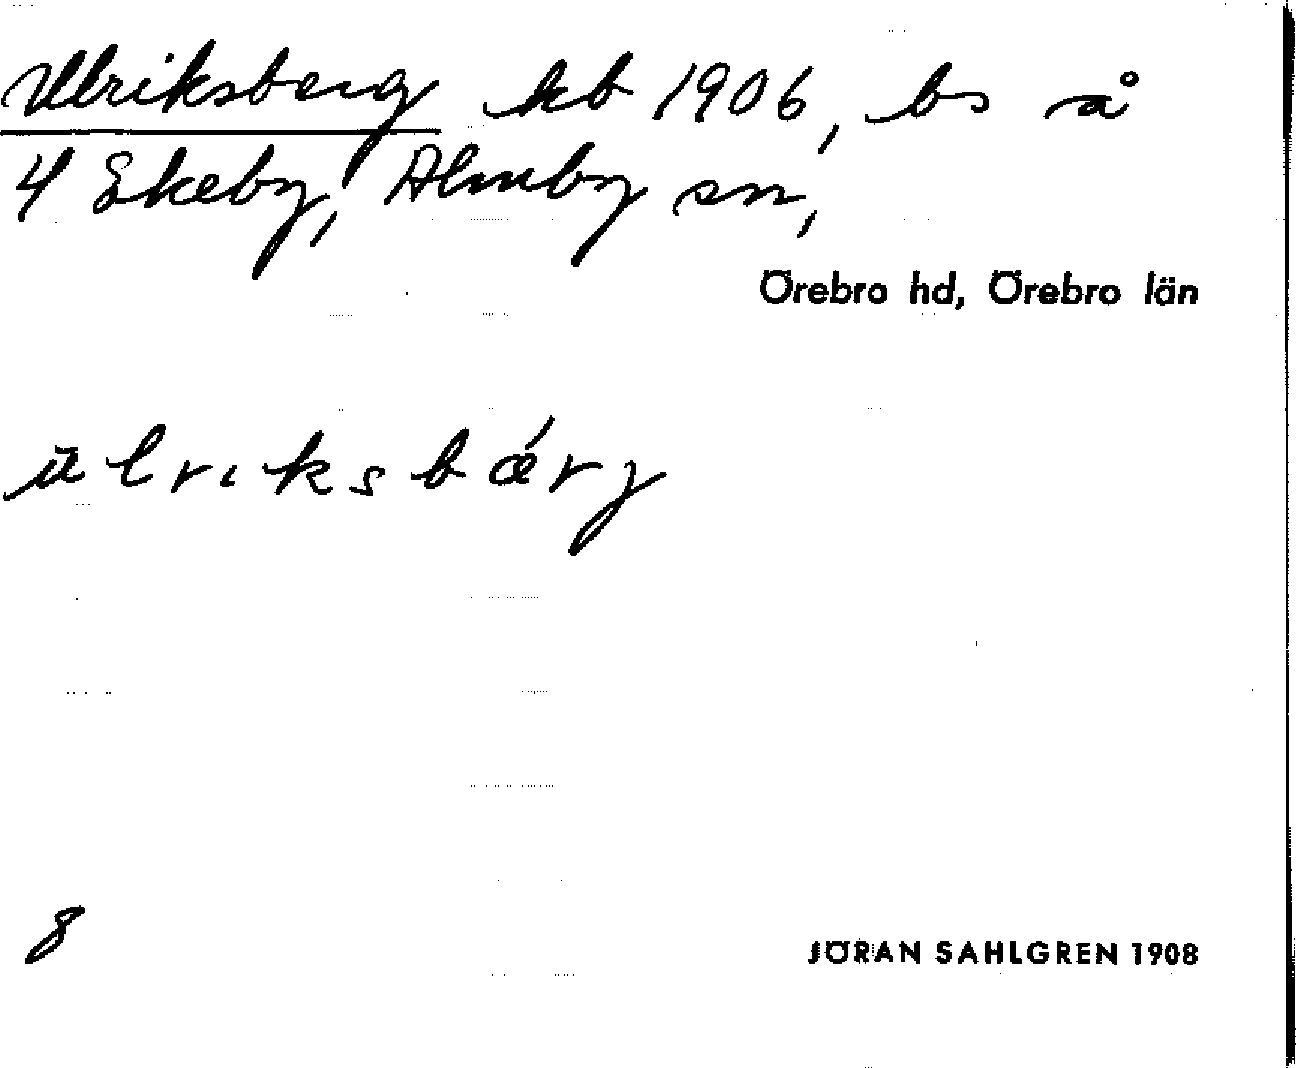 Ulriksberg kb 1906, bs å
4 Ekeby, Almby sn,
Örebro hd, Örebro län
ūlriksbǽrj
8
JÖRAN SAHLGREN 1908